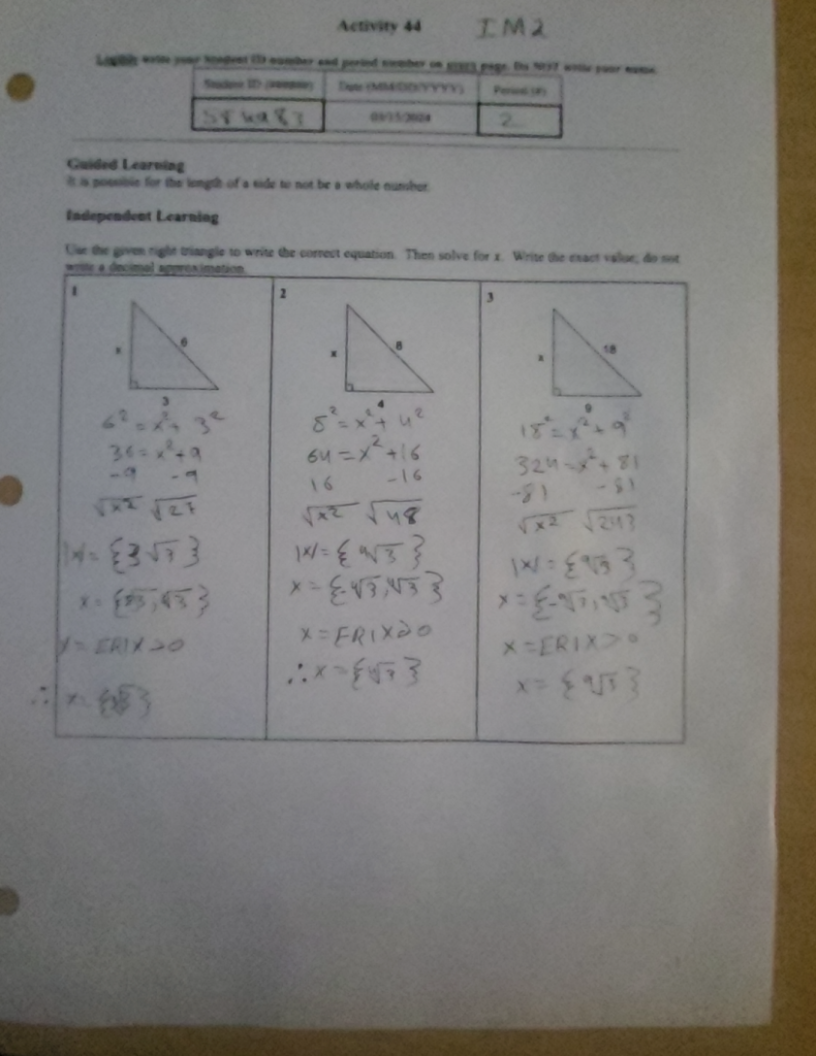 Activity 44 IM2
Legibly write your Student ID number and period number on every page. Do NOT write your name.
Student ID (######) Date (MM/DD/YYYY) Period (#)
03/15/2024 2
Guided Learning
It is possible for the length of a side to not be a whole number.
Independent Learning
Use the given right triangle to write the correct equation. Then solve for x. Write the exact value; do not
write a decimal approximation.
1
x 6
3
6² = x² + 3²
36 = x² + 9
-9 -9
√x² √27
|x| = {3√3}
x = ERIX>0
∴ x =
2
x 8
4
8² = x² + 4²
64 = x² + 16
16 -16
√x² √48
|x| = {4√3}
x = {-4√3, 4√3}
x = ERIX>0
∴ x = {4√3}
3
x 18
9
18² = x² + 9²
324 = x² + 81
-81 -81
√x² √243
|x| = {9√3}
x = {-9√3, 9√3}
x = ERIX>0
x = {9√3}